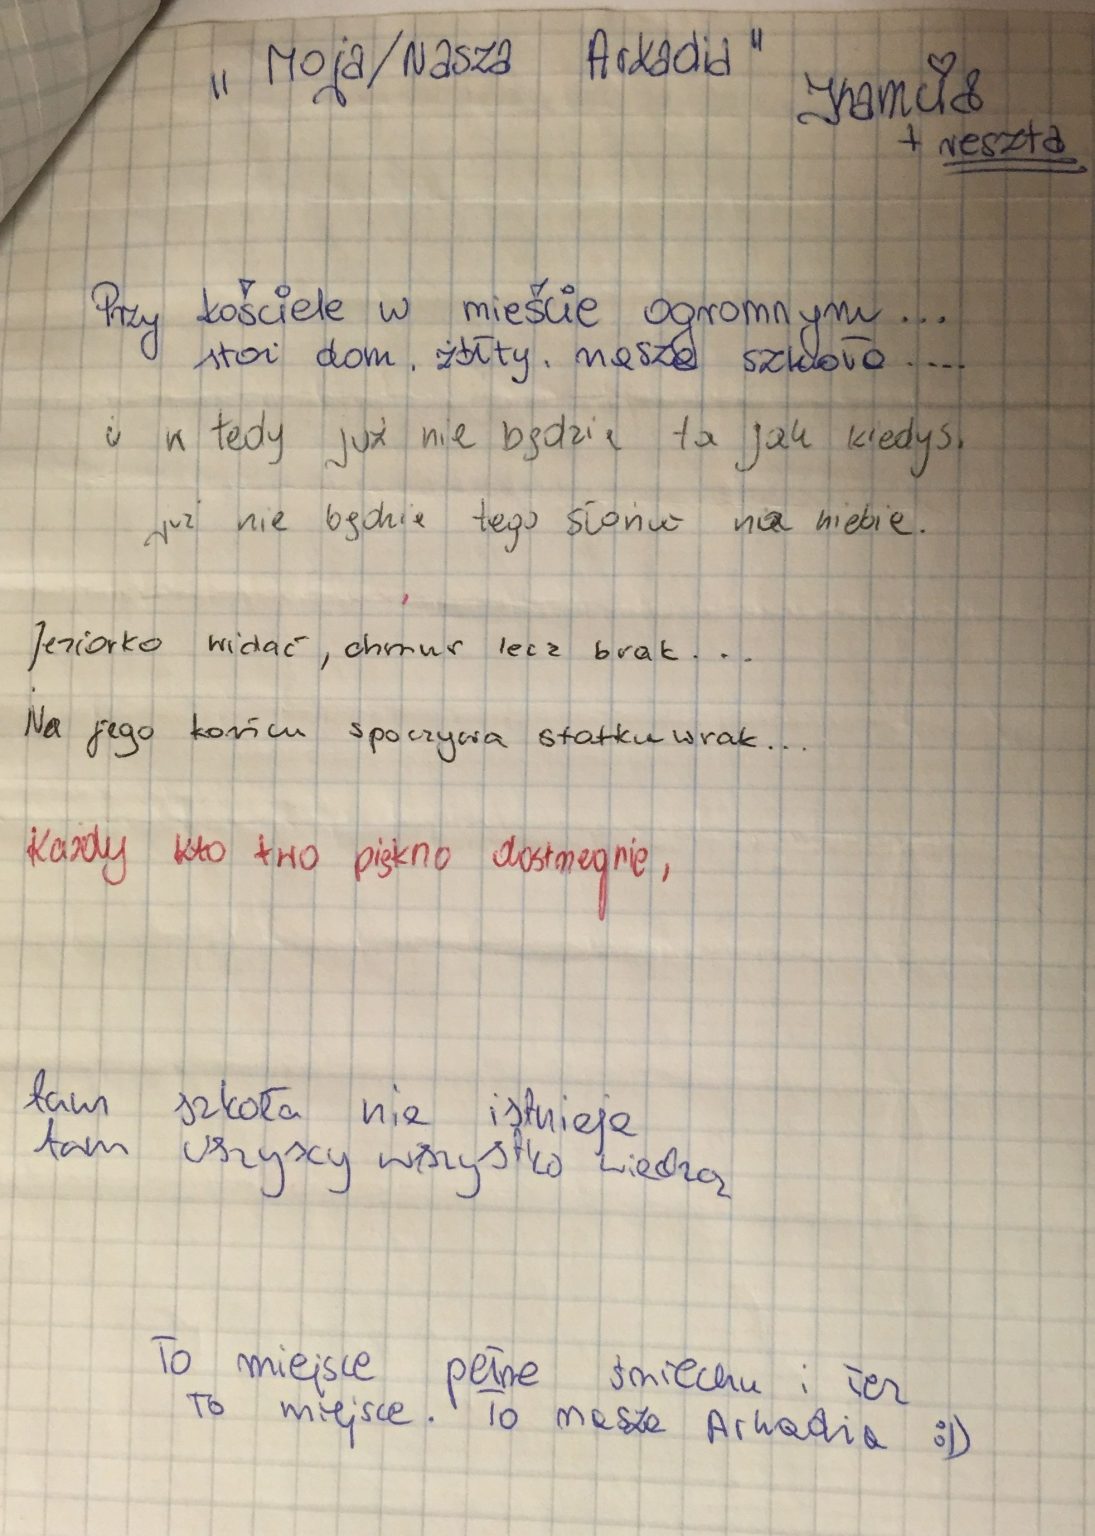 „Moja/Nasza Arkadia"
+ reszta
Przy kościele w mieście ogromnym...
stoi dom. żółty. nasza szkoła....
i w tedy już nie będzie ta jak kiedyś.
już nie będzie tego słońca na niebie.
Jeziorko widać, chmur lecz brak...
Na jego końcu spoczywa statku wrak...
Każdy kto two piękno dostrzegnie,
tam szkoła nie istnieje
tam wszyscy wszystko wiedzą
To miejsce pełne śmiechu i łez
To miejsce. To nasza Arkadia :D